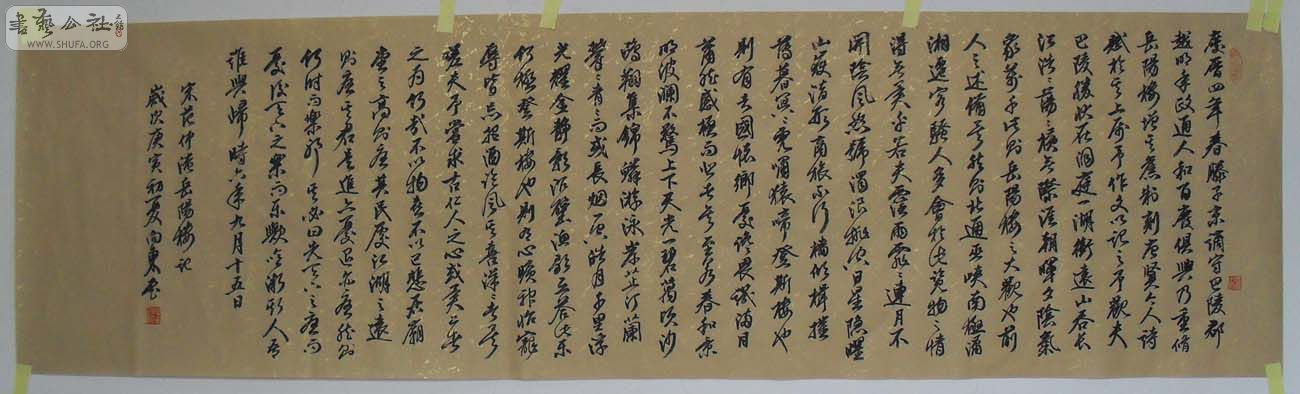 書藝公社
WWW.SHUFA.ORG
慶曆四年春滕子京謫守巴陵郡
越明年政通人和百廢俱興乃重脩
岳陽樓增其舊制刻唐賢今人詩
賦於其上屬予作文以記之予觀夫
巴陵勝狀在洞庭一湖銜遠山吞長
江浩々蕩々橫無際涯朝暉夕陰氣
象萬千此則岳陽樓之大觀也前
人之述備矣然則北通巫峽南極瀟
湘遷客騷人多會於此覽物之情
得無異乎若夫霪雨霏々連月不
開陰風怒號濁浪排空日星隱曜
山嶽潛形商旅不行檣傾楫摧
薄暮冥々虎嘯猿啼登斯樓也
則有去國懷鄉憂讒畏譏滿目
蕭然感極而悲者矣至若春和景
明波瀾不驚上下天光一碧萬頃沙
鷗翔集錦鱗游泳岸芷汀蘭
鬱々青々而或長煙一空皓月千里浮
光耀金靜影沉璧漁歌互答此樂
何極登斯樓也則有心曠神怡寵
辱皆忘把酒臨風其喜洋々者矣
嗟夫予嘗求古仁人之心或異二者
之為何哉不以物喜不以己悲居廟
堂之高則憂其民處江湖之遠
則憂其君是進亦憂退亦憂然則
何時而樂耶其必曰先天下之憂而
憂後天下之樂而樂歟噫微斯人吾
誰與歸時六年九月十五日
宋范仲淹岳陽樓記
歲次庚寅初夏向東書